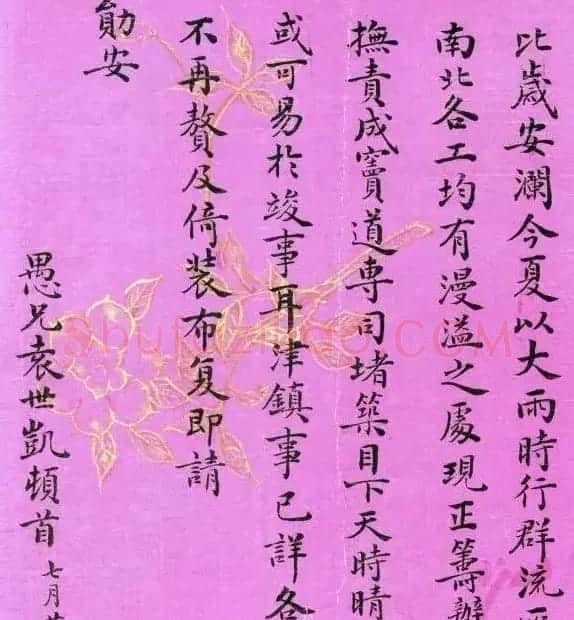 比歲安瀾今夏以大雨時行群流
南北各工均有漫溢之處現正籌辦
撫責成竇道專司堵築目下天時晴
或可易於竣事耳津鎮事已詳各
不再贅及倚裝布复即請
勛安
愚兄袁世凱頓首 七月